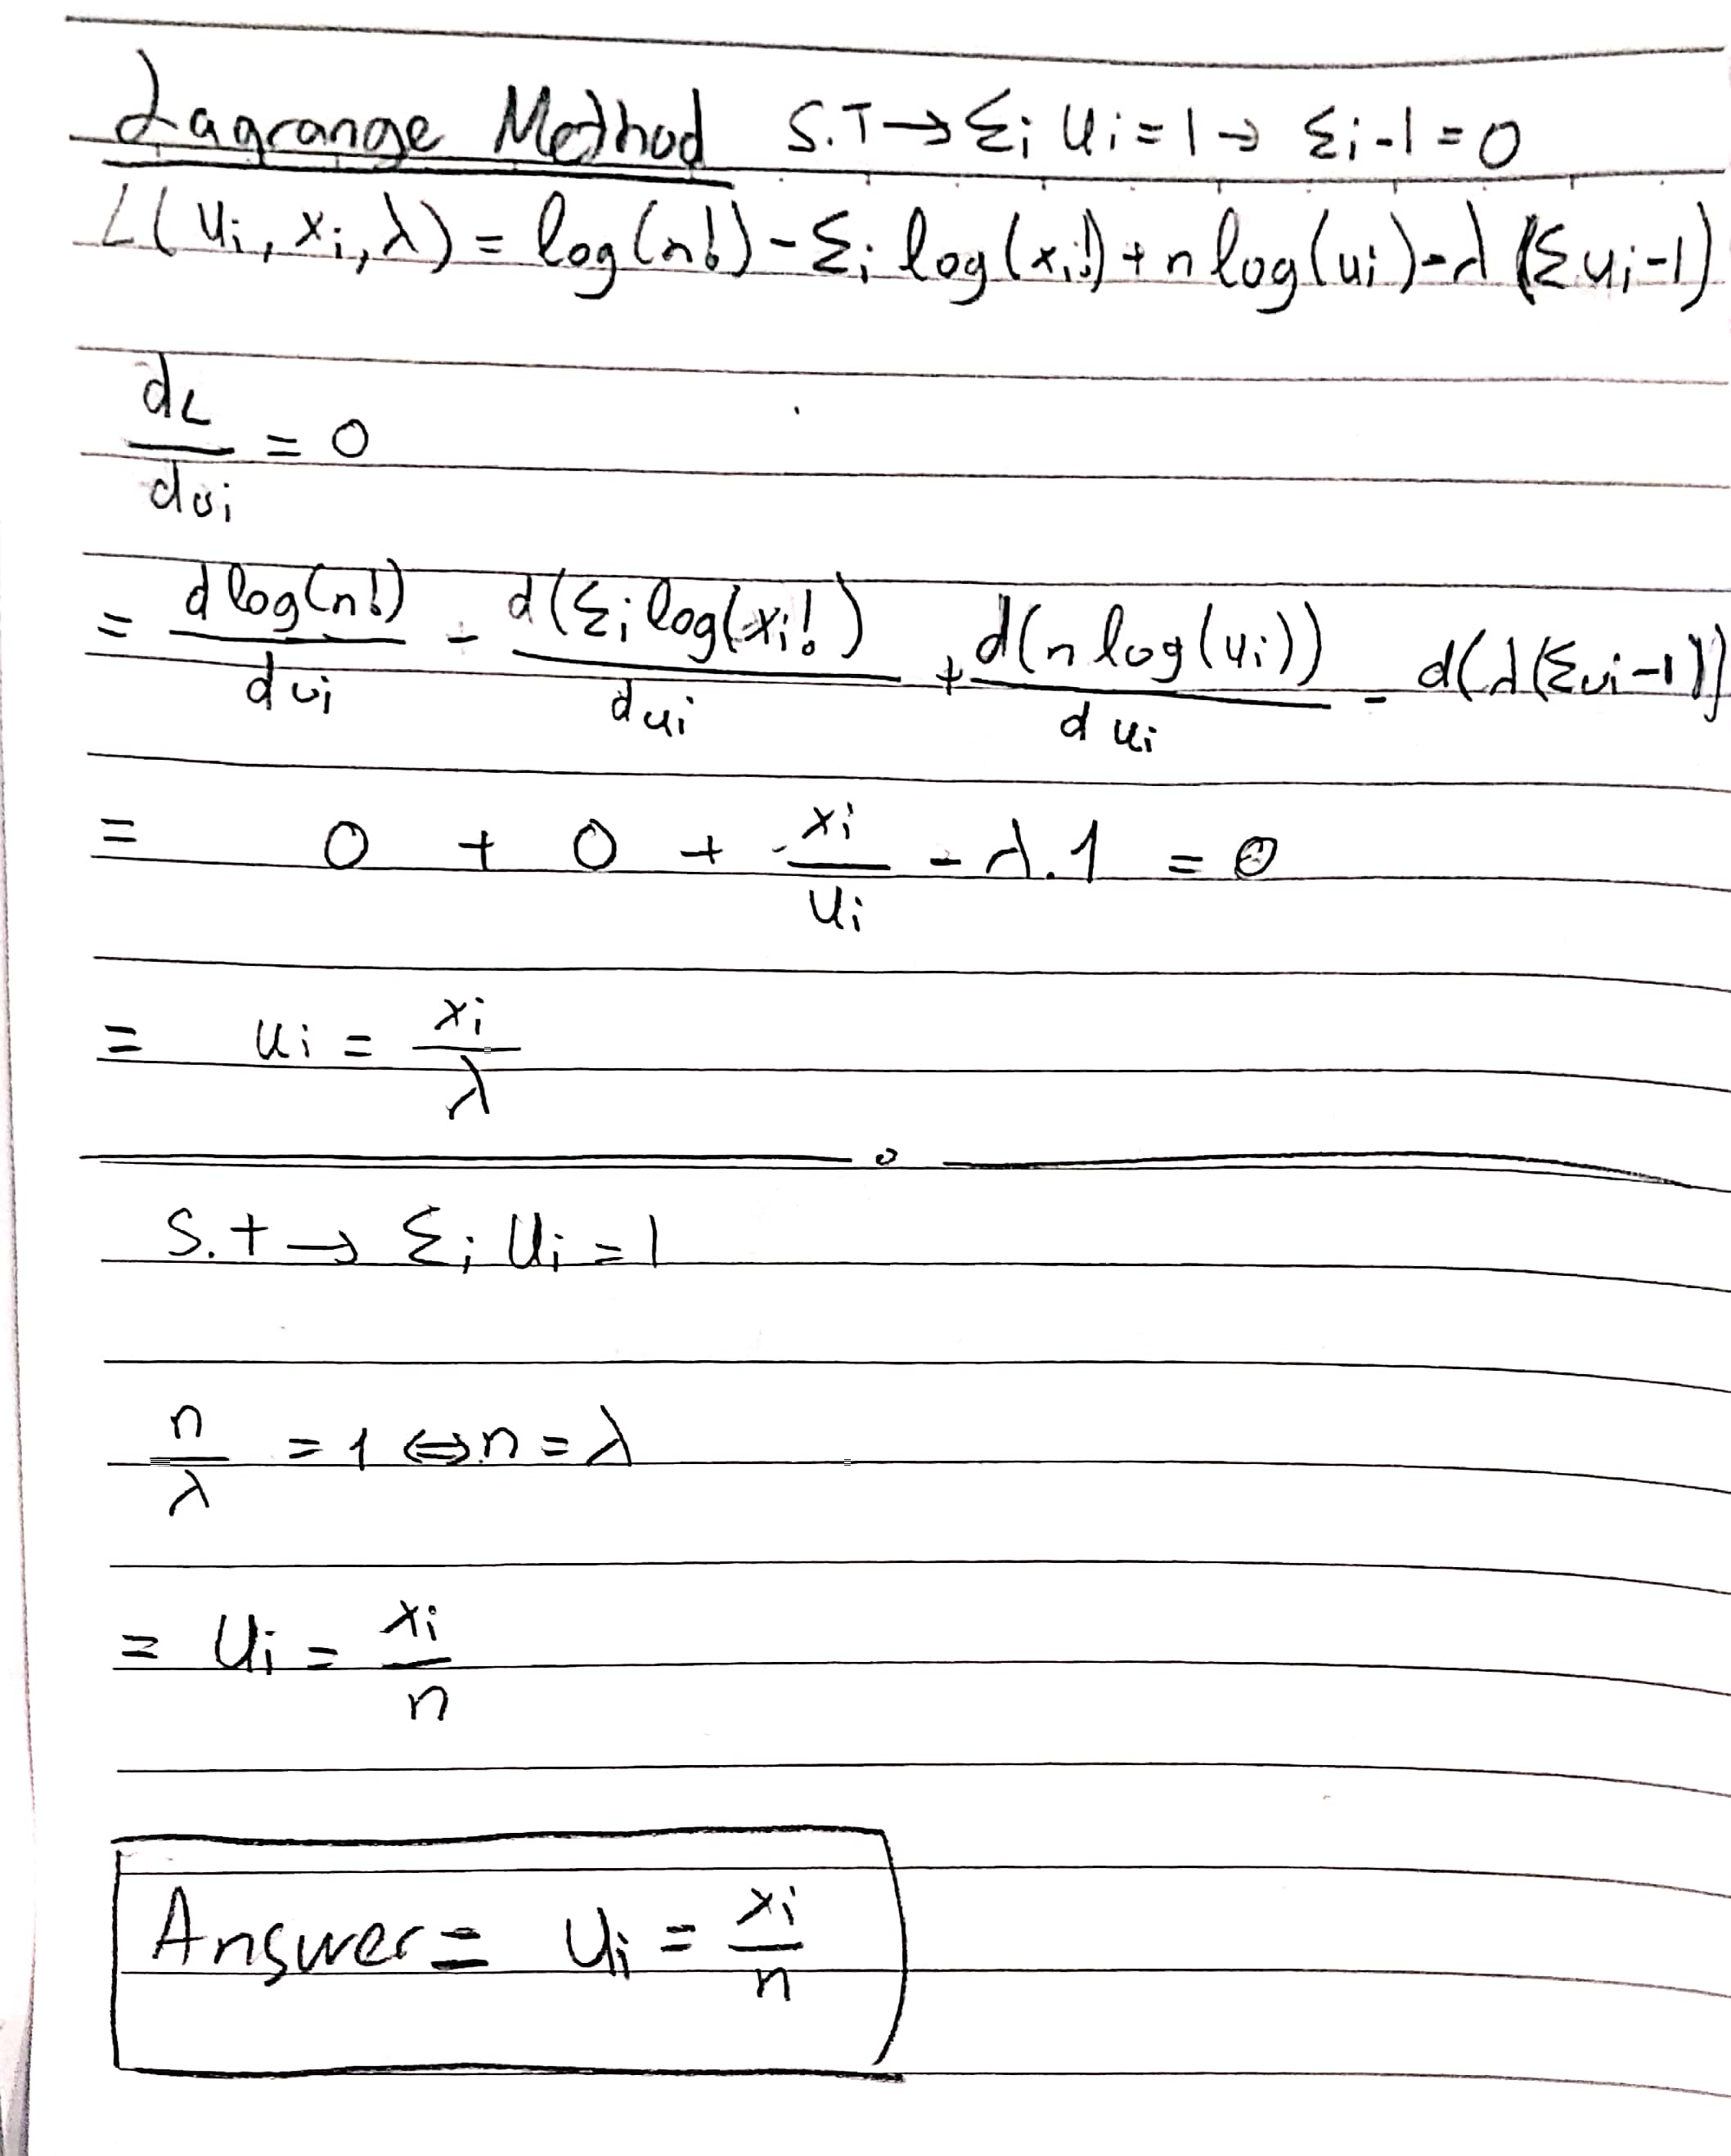 Lagrange Method S.T→Σi Ui=1→ Σi-1=0
L(Ui,xi,λ)=log(n!)-Σi log(xi!)+n log(ui)-λ(Σui-1)
dL
— = 0
dui
= dlog(n!)/dui - d(Σi log(xi!)/dui + d(n log(ui))/dui - d(λ(Σui-1))
= 0 + 0 + xi/ui - λ.1 = 0
= ui = xi/λ
S.t→ Σi Ui=1
n/λ = 1 ⇔ n=λ
= Ui = xi/n
Answer= Ui = xi/n